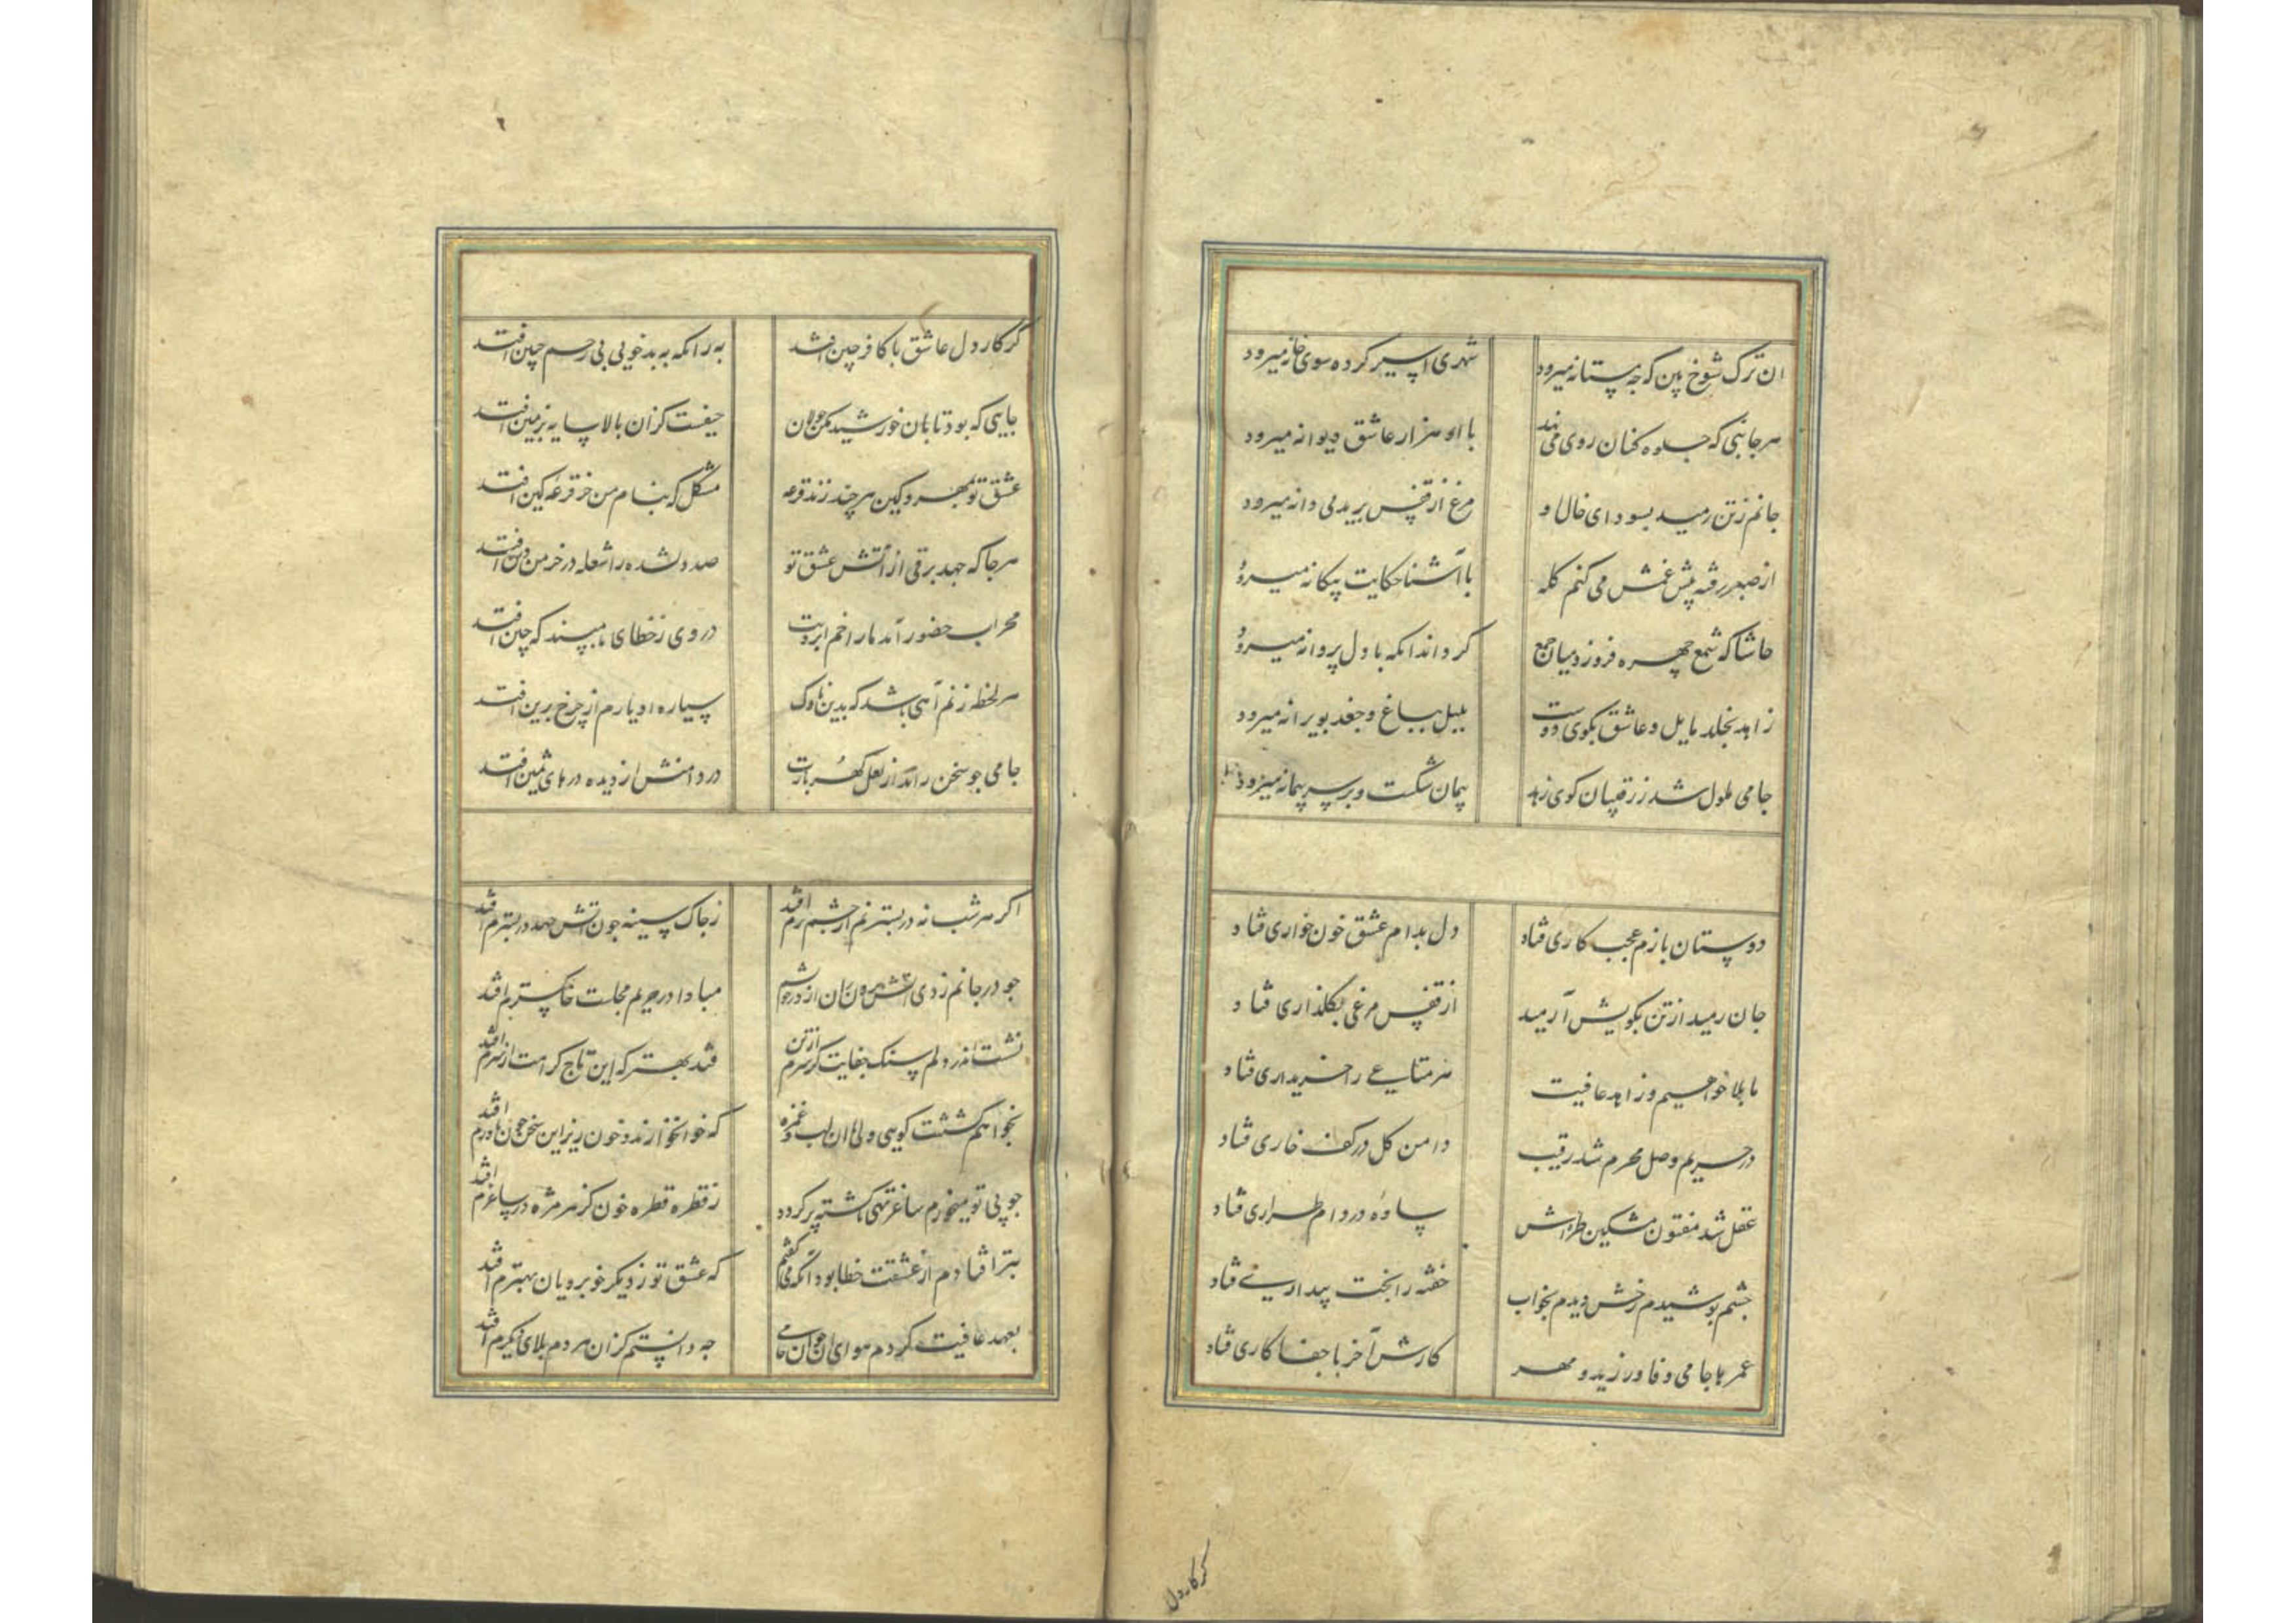 ان ترک شوخ بین که چه مستانه میرود شهری اسیر کرده سوی خانه میرود
هر جانبی که جلوه کنان روی می نهد با او هزار عاشق دیوانه میرود
جانم زتن رمید بسودای خال او مرغ از قفس برید پی دانه میرود
از صبر رفته پیش غمش می کنم کله با آشنا حکایت بیکانه میرود
حاشا که شمع چهره فروزد میان جمع کر داند انکه با دل پروانه میرود
زاهد بخلد مایل و عاشق بکوی دوست بلبل بباغ و جغد بویرانه میرود
جامی ملول شد ز رقیبان کوی زهد پیمان شکست و بر سر پیمانه میرود
دوستان بازم عجب کاری فتاد دل بدام عشق خون خواری فتاد
جان رمید از تن بکویش آرمید از قفس مرغی بکلذاری فتاد
ما بلا خواهیم و زاهد عافیت هر متاعی را خریداری فتاد
در حریم وصل محرم شد رقیب دامن کل در کف خاری فتاد
عقل شد مفتون مشکین طره اش ساده در دام طراری فتاد
چشم پوشیدم رخش دیدم بخواب خفته را بخت بیداری فتاد
عمرها جامی وفا ورزید و مهر کارش آخر با جفا کاری فتاد
کر کار دل
کر کار دل عاشق با کافر چین افتد به زانکه به بدخویی بی رحم چنین افتد
جایی که بود تابان خورشید مکن جولان حیفست کزان بالا سایه بزمین افتد
عشق تو بمهر و کین هر چند زند قرعه مشکل که بنام من جز قرعه کین افتد
هر جا که جهد برقی از آتش عشق تو صد دلشده را شعله در خرمن دین افتد
محراب حضور آمد ما را خم ابرویت در وی ز خطای ما مپسند که چین افتد
هر لحظه زنم آهی باشد که بدین ناوک سیاره ادبارم از چرخ برین افتد
جامی جو سخن راند از لعل کهر بارت در دامنش از دیده درهای ثمین افتد
اکر هر شب نه در بستر نم از چشم ترم افتد ز جاک سینه جون آتش جهد در بسترم افتد
جو در جانم زدی آتش مرو از درم مبادا در حریم مجلست خاکسترم افتد
نشست اندر دلم سنک جفایت کر سرم از تن فتد بهتر که این تاج کرامت از سرم افتد
نخواهم کشتنت کویی ولی از ان لب و غمزه که خوانخوارند و خون ریز این سخن جون باورم افتد
جو بی تو میخورم ساغر تهی ناکشته پر کردد ز قطره قطره خون کز هر مژه در ساغرم افتد
بتر افتادم از عشقت خطا بود انکه می کفتم که عشق تو ز دیکر خوبرویان بهترم افتد
بعهد عافیت کردم هوای ان جوان جامی جه دانستم کزان هر دم بلای دیکرم افتد